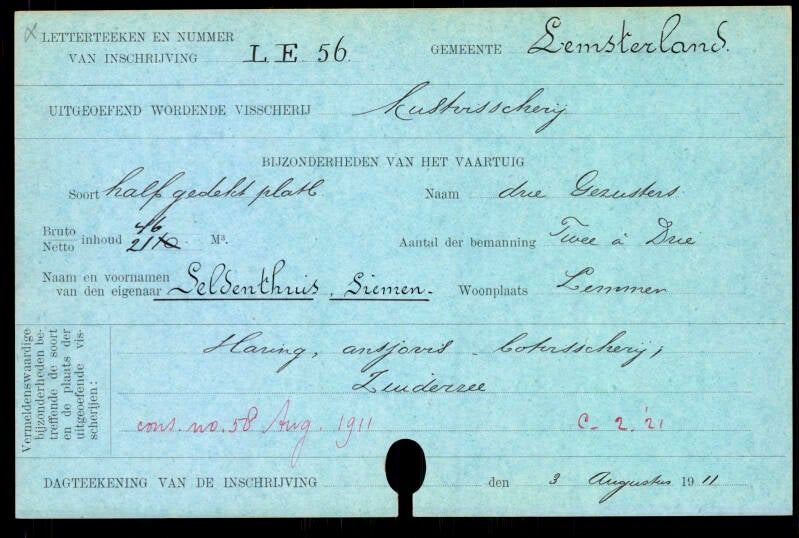 LETTERTEEKEN EN NUMMER
VAN INSCHRIJVING LE 56. GEMEENTE Lemsterland.
UITGEOEFEND WORDENDE VISSCHERIJ Kustvisscherij
BIJZONDERHEDEN VAN HET VAARTUIG
Soort half gedekt platb Naam drie Gezusters
Bruto 46
Netto inhoud 21 M³. Aantal der bemanning Twee à Drie
Naam en voornamen
van den eigenaar Seldenthuis, Siemen. Woonplaats Lemmer
Vermeldenswaardige
bijzonderheden be-
treffende de soort
en de plaats der
uitgeoefende vis-
scherijen:
Haring, ansjovis botvisscherij;
Zuiderzee
cons. no. 58 Aug. 1911 C. 2.'21
DAGTEEKENING VAN DE INSCHRIJVING den 3 Augustus 1911